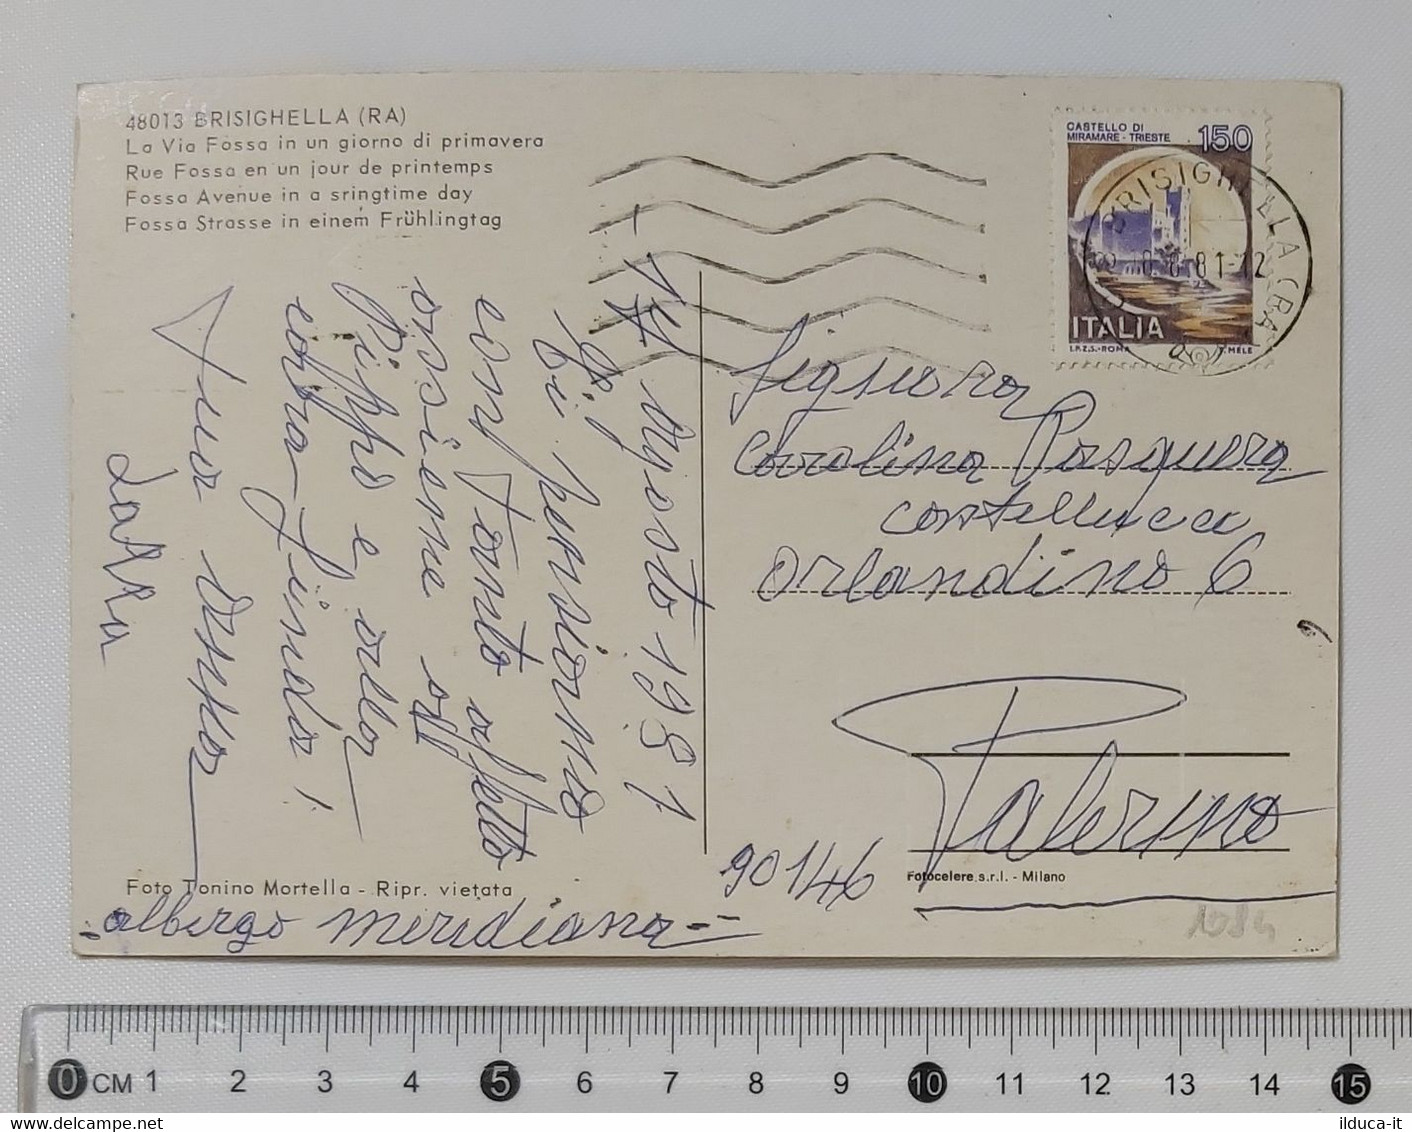 48013 BRISIGHELLA (RA)
La Via Fossa in un giorno di primavera
Rue Fossa en un jour de printemps
Fossa Avenue in a sringtime day
Fossa Strasse in einem Frühlingtag
CASTELLO DI
MIRAMARE - TRIESTE 150
ITALIA
I.P.Z.S.-ROMA E. MELE
BRISIGHELLA (RA)
8 81-12
agosto 1981
pensiamo
con tanto affetto
assieme
Pippo e alla
Signora
Carolina Pasquera
Castellucci
Orlandino 6
90146 Palermo
Foto Tonino Mortella - Ripr. vietata
Fotocelere s.r.l. - Milano
- albergo meridiana -
0 CM 1 2 3 4 5 6 7 8 9 10 11 12 13 14 15
ilduca-it